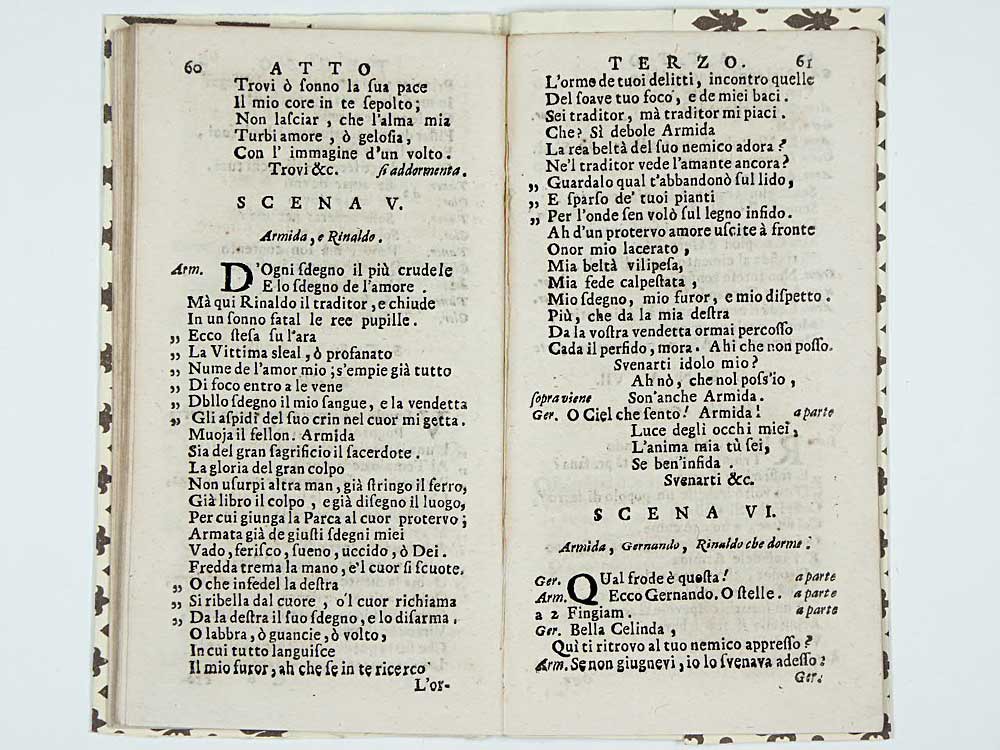 60 ATTO
Trovi ò ſonno la ſua pace
Il mio core in te ſepolto;
Non laſciar, che l'alma mia
Turbi amore, ò geloſia,
Con l' immagine d'un volto.
Trovi &c. ſi addormenta.
SCENA V.
Armida, e Rinaldo.
Arm. D'Ogni ſdegno il più crudele
E lo ſdegno de l'amore.
Mà qui Rinaldo il traditor, e chiude
In un ſonno fatal le ree pupille.
,, Ecco ſteſa ſu l'ara
,, La Vittima sleal, ò profanato
,, Nume de l'amor mio; s'empie già tutto
,, Di foco entro a le vene
,, Dbllo ſdegno il mio sangue, e la vendetta
,, Gli aſpidi del ſuo crin nel cuor mi getta.
Muoja il fellon. Armida
Sia del gran ſagrificio il ſacerdote.
La gloria del gran colpo
Non uſurpi altra man, già ſtringo il ferro,
Già libro il colpo, e già diſegno il luogo,
Per cui giunga la Parca al cuor protervo;
Armata già de giuſti ſdegni miei
Vado, feriſco, ſueno, uccido, ò Dei.
Fredda trema la mano, e'l cuor ſi ſcuote.
,, O che infedel la deſtra
,, Si ribella dal cuore, o'l cuor richiama
,, Da la deſtra il ſuo ſdegno, e lo diſarma.
O labbra, ò guancie, ò volto,
In cui tutto languiſce
Il mio furor, ah che ſe in te ricerco
L'or-
TERZO. 61
L'orme de tuoi delitti, incontro quelle
Del ſoave tuo foco, e de miei baci.
Sei traditor, mà traditor mi piaci.
Che? Sì debole Armida
La rea beltà del ſuo nemico adora?
Ne'l traditor vede l'amante ancora?
,, Guardalo qual t'abbandonò ſul lido,
,, E ſparſo de' tuoi pianti
,, Per l'onde ſen volò ſul legno infido.
Ah d'un protervo amore uſcite à fronte
Onor mio lacerato,
Mia beltà vilipeſa,
Mia fede calpeſtata,
Mio ſdegno, mio furor, e mio diſpetto.
Più, che da la mia deſtra
Da la voſtra vendetta ormai percoſſo
Cada il perfido, mora. Ahi che non poſſo.
Svenarti idolo mio?
Ah nò, che nol poſs'io,
ſopraviene Son'anche Armida.
Ger. O Ciel che ſento! Armida! a parte
Luce degli occhi miei,
L'anima mia tù ſei,
Se ben'infida.
Svenarti &c.
SCENA VI.
Armida, Gernando, Rinaldo che dorme.
Ger. QUal frode è queſta! a parte
Arm. Ecco Gernando. O ſtelle. a parte
a 2 Fingiam. a parte
Ger. Bella Celinda,
Quì ti ritrovo al tuo nemico appreſſo?
Arm. Se non giugnevi, io lo ſvenava adeſſo?
Ger.